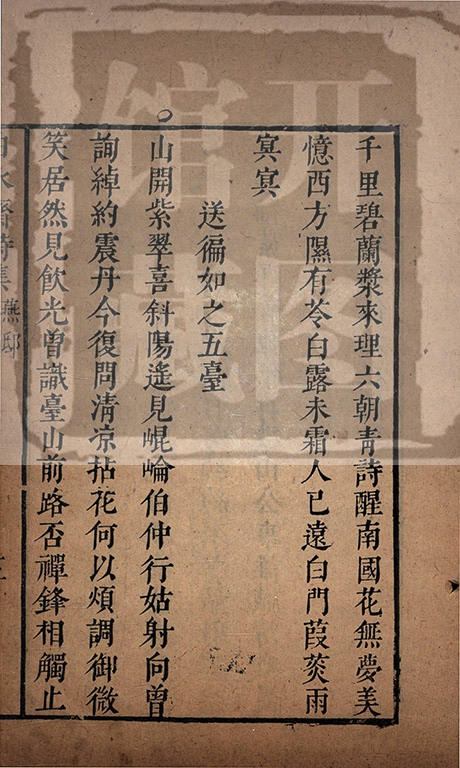 千里碧蘭漿來理六朝青詩醒南國花無夢美
憶西方隰有苓白露未霜人已遠白門葭菼雨
㝠㝠
送徧如之五臺
山開紫翠喜斜陽遙見崐崘伯仲行姑射向曾
詢綽約震丹今復問清凉拈花何以煩調御微
笑居然見飲光曽識臺山前路否禪鋒相觸止
白水齋詩集 燕邸